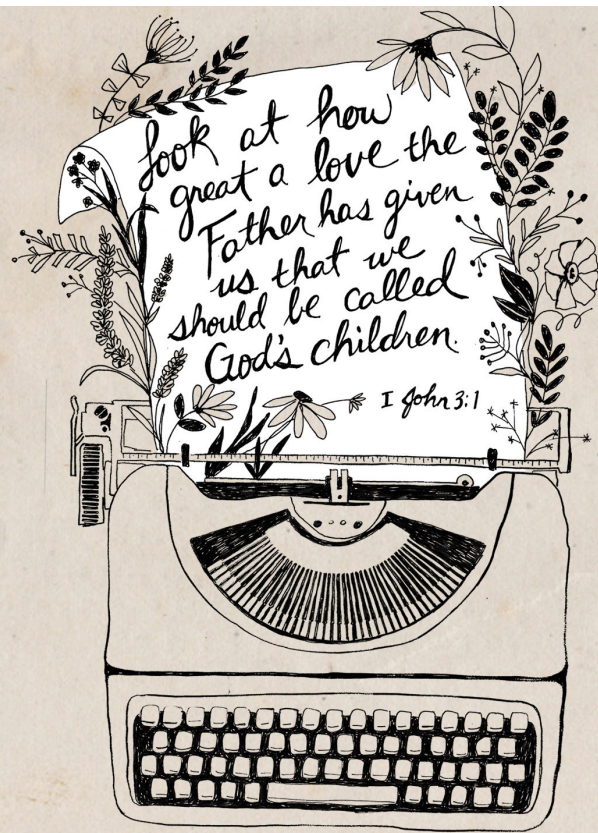 Look at how
great a love the
Father has given
us that we
should be called
God's children.
I John 3:1